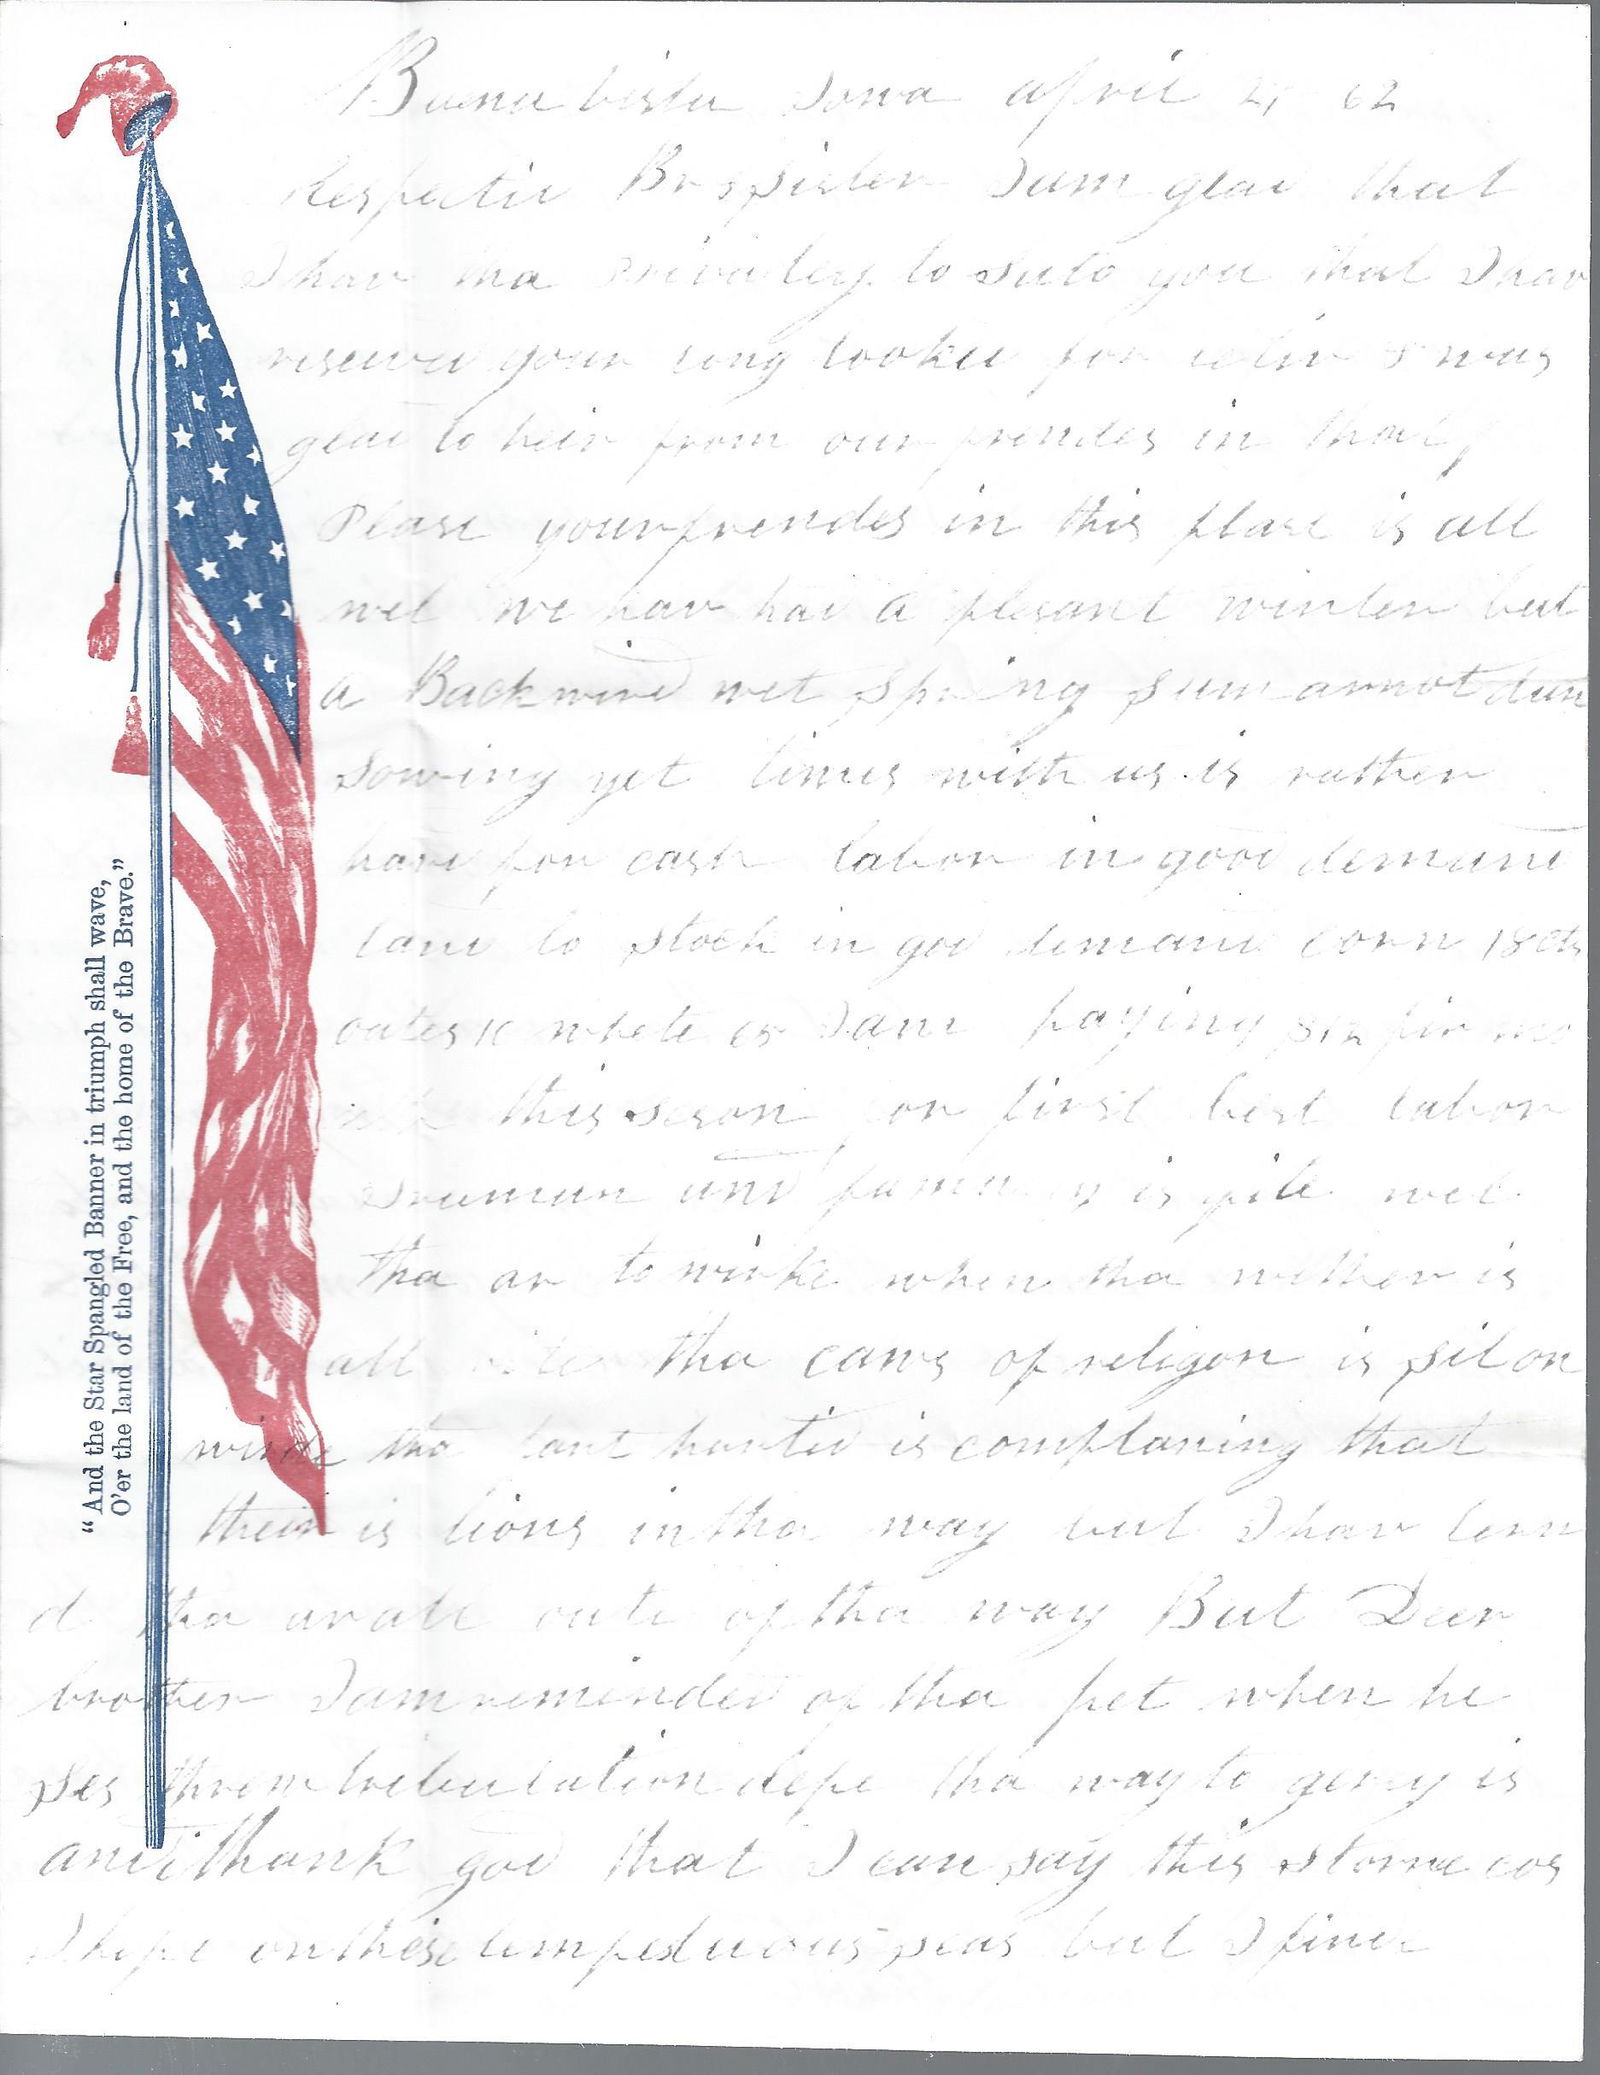 Buena vista Iowa april 21 62
Respectid Br & sister I am glad that
I hav tha to Sa to you that I hav
reseived your long looked for letir & was
glad to heir from our frendes in that
Plase your frendes in this plase is all
wel we hav had a plesant winter but
a Backwird wet Spring Sum ar not dun
sowing yet times with us is rather
hard for cash labor in good demand
land to stock in god demand corn 18 cts
oates 10 whete 65 I am paying $12 pir mo
this seson for first best labor
Truman and is qite wel
tha ar to wirke when tha wether is
all tha caws of religon is stil on
winde tha hartid is complaning that
their is lions in tha way but I hav lern
d tha ar all oute of tha way But Deer
brother I am reminded of tha pet when he
ses threw tribulation depe tha way to glory is
and i thank god that I can say this storme cos
I on these tempestuous seas but I finde
“And the Star Spangled Banner in triumph shall wave,
O'er the land of the Free, and the home of the Brave.”